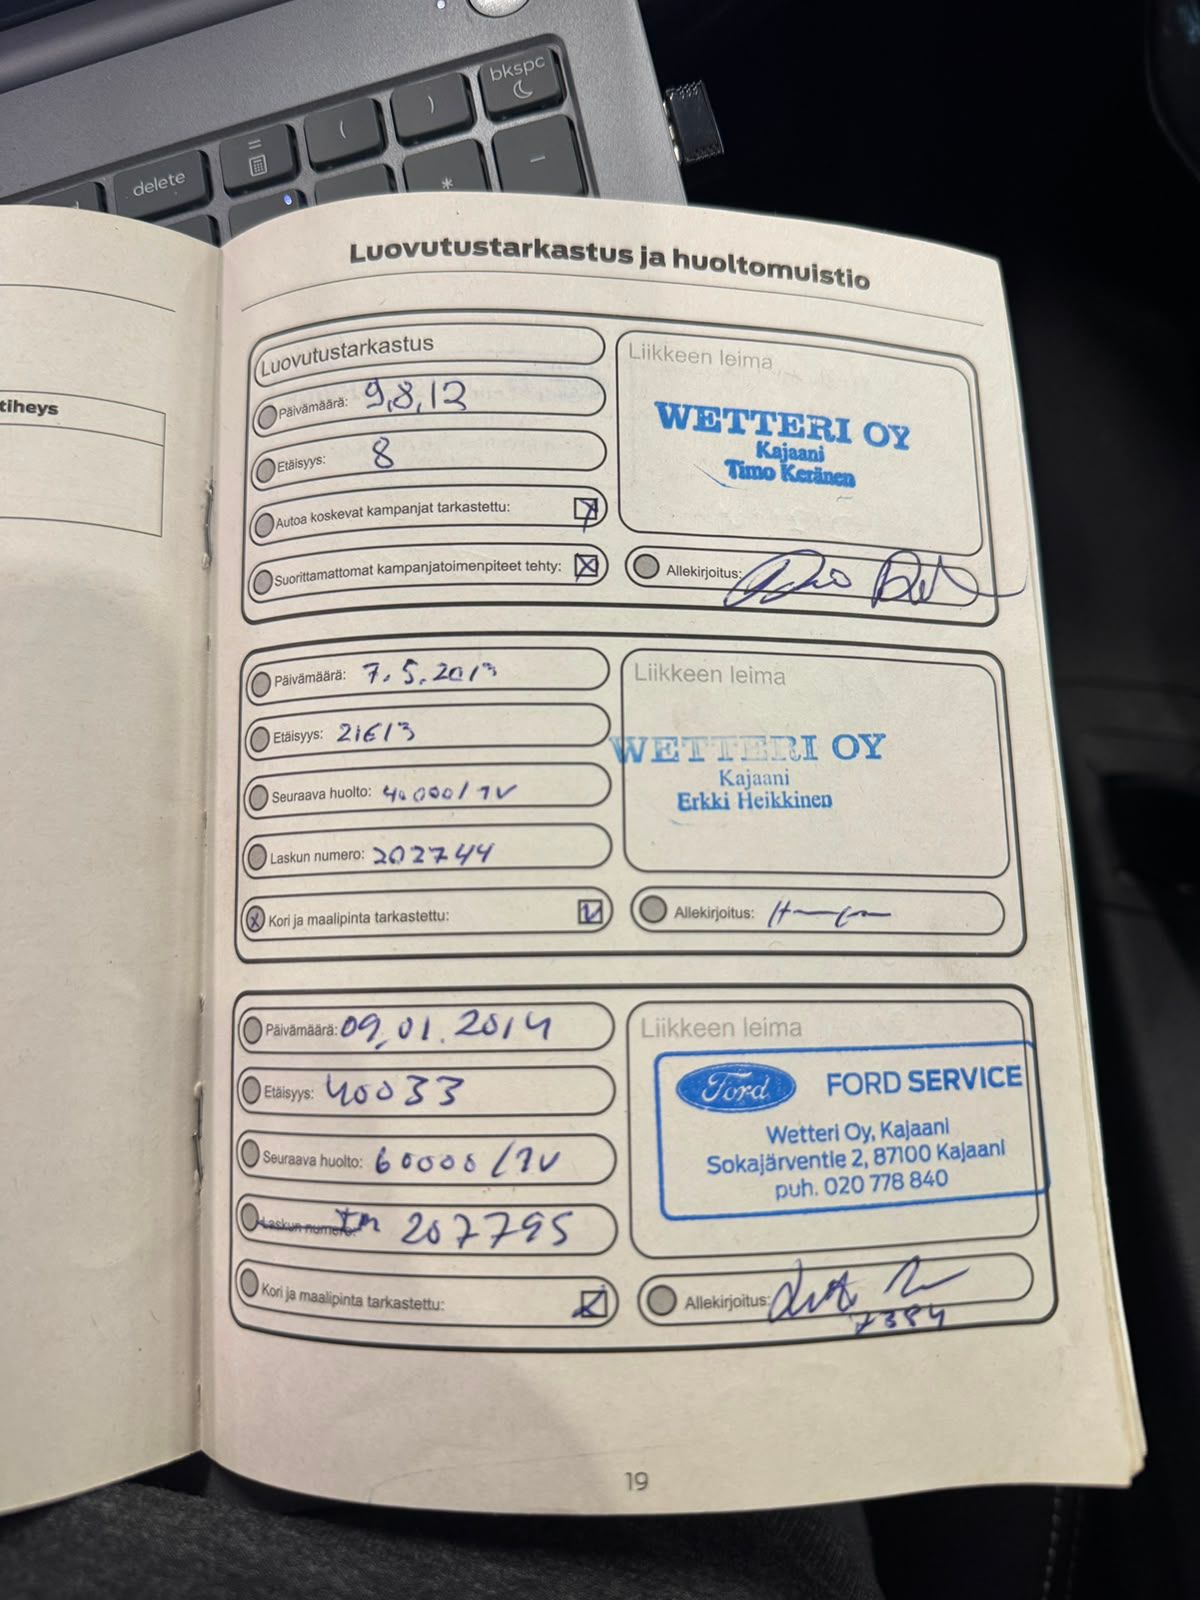 bkspc
)
(
=
delete
*
-
tiheys
Luovutustarkastus ja huoltomuistio
Luovutustarkastus
Päivämäärä: 9,8,12
Etäisyys: 8
Autoa koskevat kampanjat tarkastettu:
Suorittamattomat kampanjatoimenpiteet tehty:
Liikkeen leima
WETTERI OY
Kajaani
Timo Keränen
Allekirjoitus:
Päivämäärä: 7.5.2013
Etäisyys: 21613
Seuraava huolto: 40000/1V
Laskun numero: 202744
Kori ja maalipinta tarkastettu:
Liikkeen leima
WETTERI OY
Kajaani
Erkki Heikkinen
Allekirjoitus:
Päivämäärä: 09.01.2014
Etäisyys: 40033
Seuraava huolto: 60000/1V
Laskun numero: TM 207795
Kori ja maalipinta tarkastettu:
Liikkeen leima
Ford FORD SERVICE
Wetteri Oy, Kajaani
Sokajärventie 2, 87100 Kajaani
puh. 020 778 840
Allekirjoitus:
7384
19